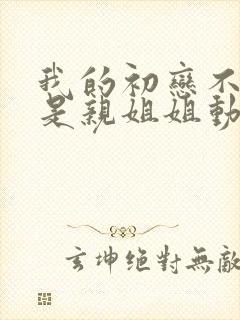 我的初戀不
是親姐姐動
玄坤絕對無敵